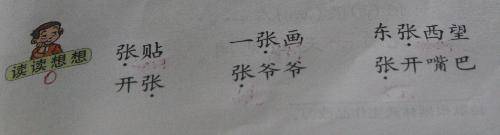 读读想想
张贴 一张画 东张西望
开张 张爷爷 张开嘴巴